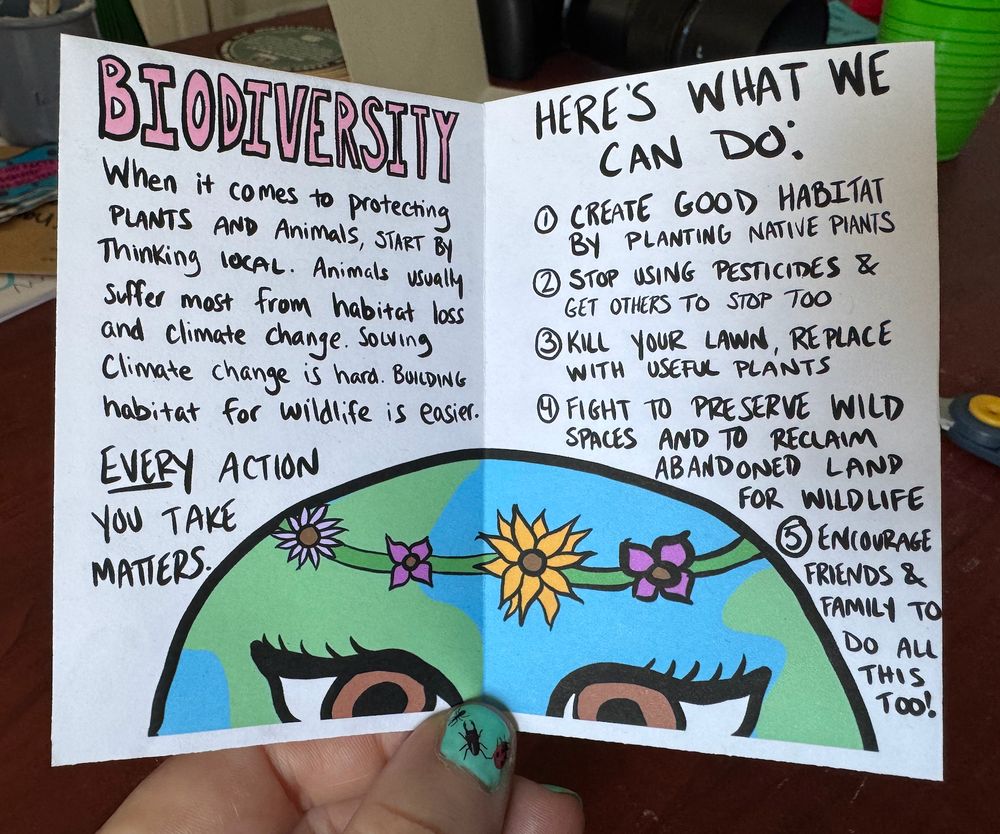 BIODIVERSITY
When it comes to protecting
PLANTS AND Animals, START BY
Thinking LOCAL. Animals usually
suffer most from habitat loss
and climate change. Solving
Climate change is hard. BUILDING
habitat for wildlife is easier.
EVERY ACTION
YOU TAKE
MATTERS.
HERE'S WHAT WE
CAN DO:
① CREATE GOOD HABITAT
BY PLANTING NATIVE PLANTS
② STOP USING PESTICIDES &
GET OTHERS TO STOP TOO
③ KILL YOUR LAWN, REPLACE
WITH USEFUL PLANTS
④ FIGHT TO PRESERVE WILD
SPACES AND TO RECLAIM
ABANDONED LAND
FOR WILDLIFE
⑤ ENCOURAGE
FRIENDS &
FAMILY TO
DO ALL
THIS
TOO!